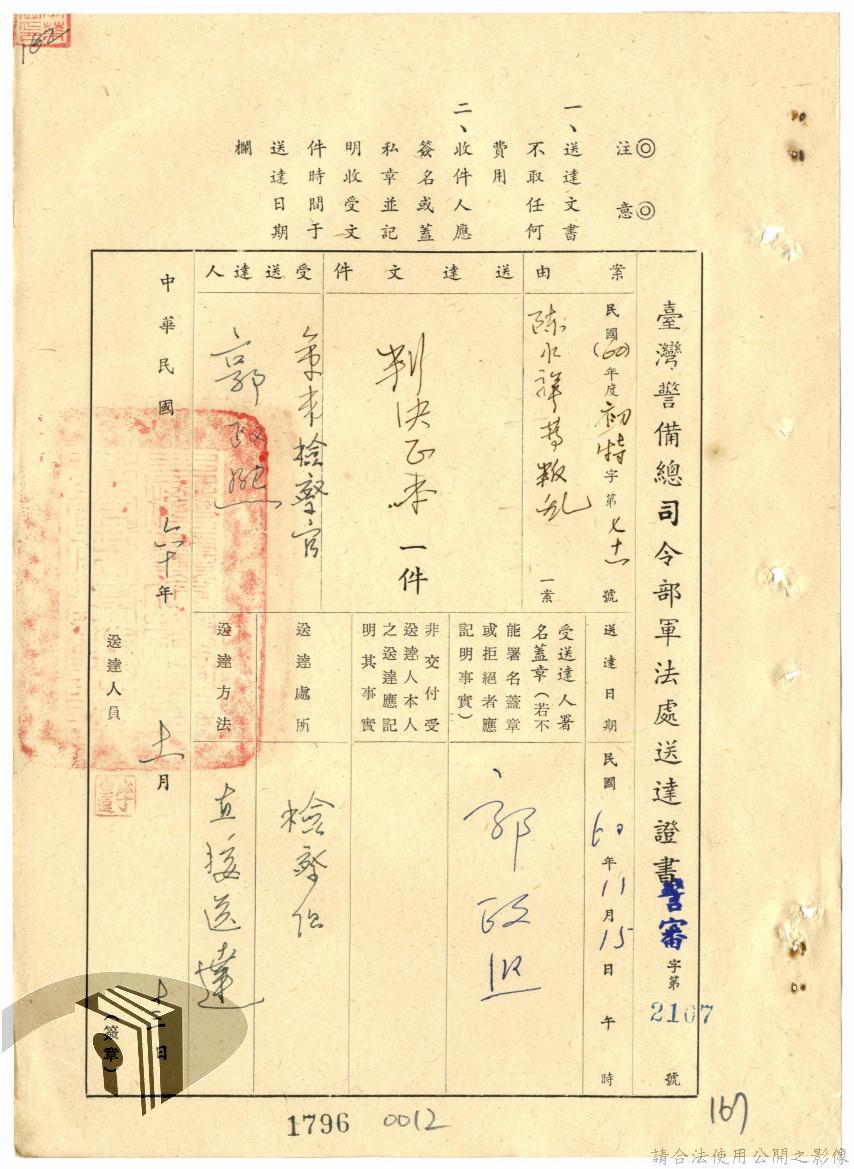 162
◎注意◎
一、送達文書
不取任何
費用
二、收件人應
簽名或蓋
私章並記
明收受文
件時間于
送達日期
欄
臺灣警備總司令部軍法處送達證書 警審字第2107號
案由
民國(60)年度初特字第七十一號
陳水祥等叛乱一案
送達文件
判決正本一件
受送達人
本案檢察官
郭政熙
送達日期
民國60年11月15日午時
受送達人署
名蓋章(若不
能署名蓋章
或拒絕者應
記明事實)
郭政熙
非交付受
送達人本人
之送達應記
明其事實
送達處所
檢察組
送達方法
直接送達
中華民國六十年十一月十三日
送達人員
(簽章)
1796
0012
167
請合法使用公開之影像